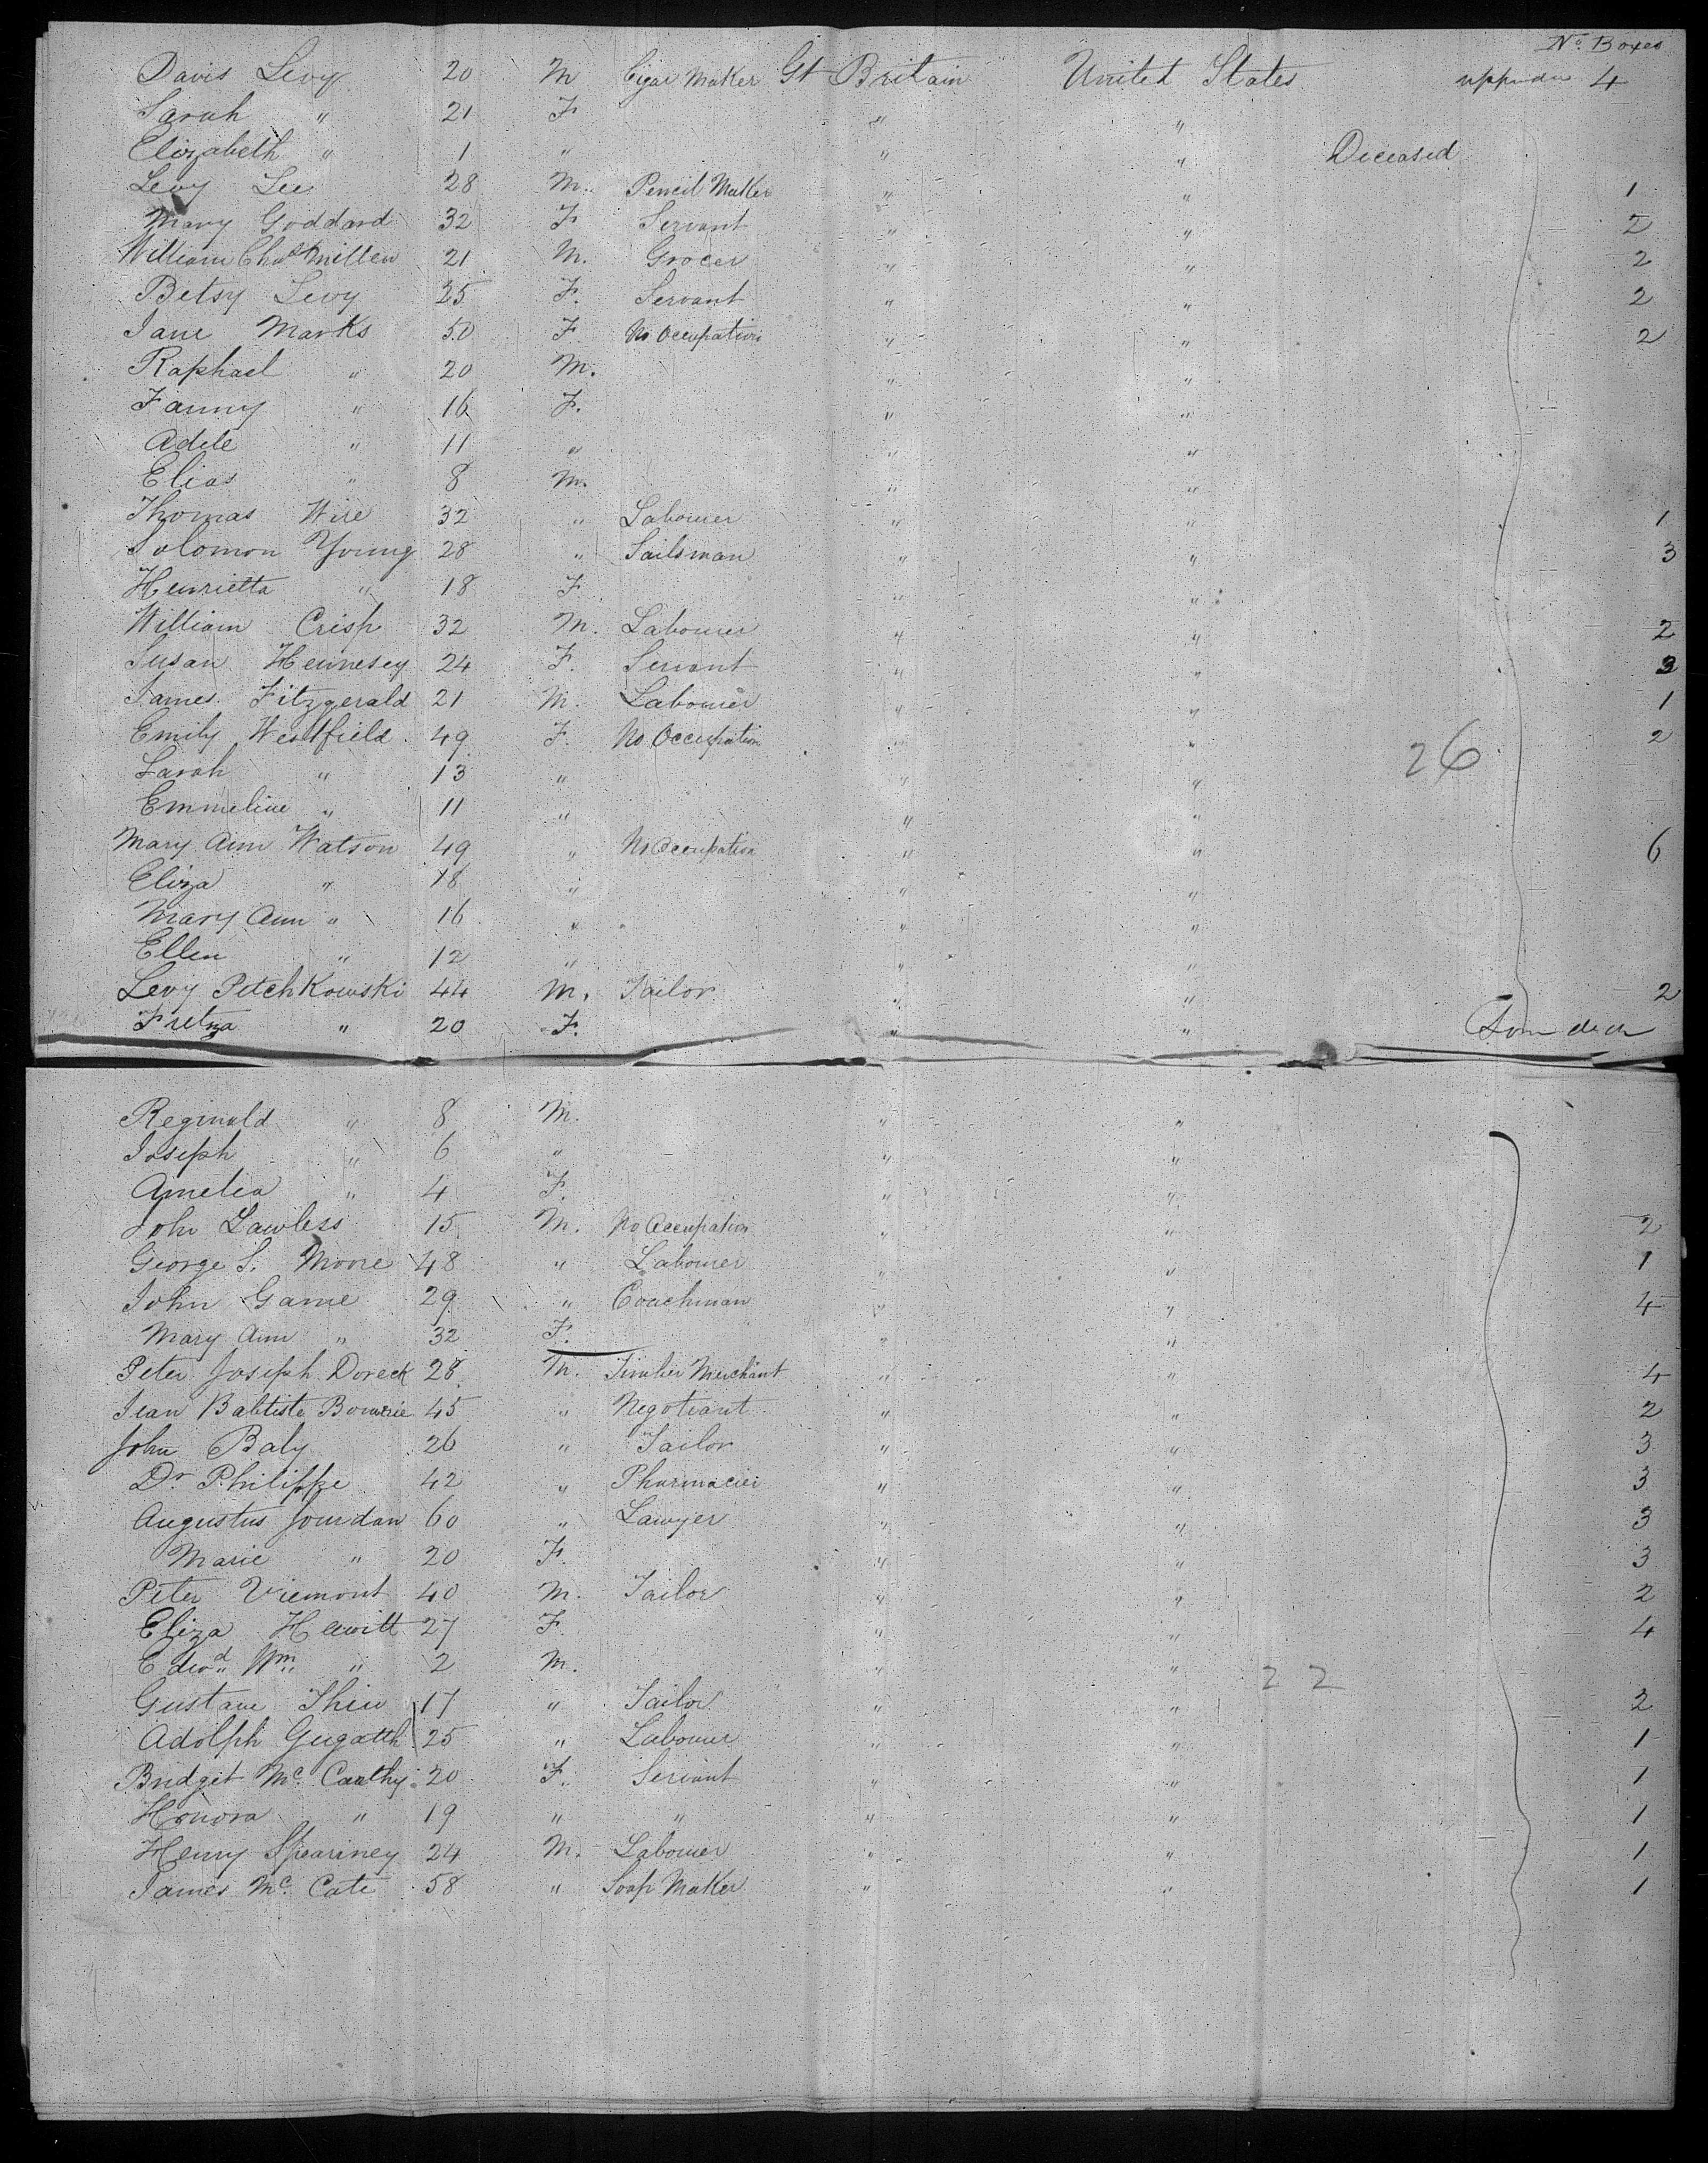 No. Boxes
Davis Levy 20 M Cigar Maker Gt Britain United States upper de 4
Sarah " 21 F " "
Elizabeth " 1 " " " Deceased
Levy Lee 28 M. Pencil Maker " " 1
Mary Goddard 32 F Servant " " 2
William Chas Mitten 21 M. Grocer " " 2
Betsy Levy 25 F. Servant " " 2
Jane Marks 50 F. No Occupation " " 2
Raphael " 20 M. " "
Fanny " 16 F. " "
Adele " 11 " " "
Elias " 8 M. " "
Thomas Wire 32 " Labourer " " 1
Solomon Young 28 " Sailsman " " 3
Henrietta " 18 F " "
William Crisp 32 M. Labourer " " 2
Susan Hennesey 24 F. Servant " " 3
James Fitzgerald 21 M. Labourer " " 1
Emily Westfield 49 F. No Occupation " " 2
26
Sarah " 13 " " "
Emmeline " 11 " " "
Mary Ann Watson 49 " No Occupation " " 6
Eliza " 18 " " "
Mary Ann " 16 " " "
Ellen " 12 " " "
Levy Petchkowski 44 M. Tailor " " 2
Fretza " 20 F. " "
Reginald " 8 M. " "
Joseph " 6 " " "
Amelia " 4 F. " "
John Lawless 15 M. No Occupation " " 2
George S. Moore 48 " Labourer " " 1
John Game 29 " Coachman " " 4
Mary Ann " 32 F. " "
Peter Joseph Doreck 28 M. Timber Merchant " " 4
Jean Babtiste 45 " Negotiant " " 2
John Baly 26 " Tailor " " 3
Dr Philippe 42 " Pharmacien " " 3
Augustus Jourdan 60 " Lawyer " " 3
Marie " 20 F. " " 3
Peter Viemont 40 M. Tailor " " 2
Eliza Hewitt 27 F. " " 4
Edwd Wm " 2 M. " "
22
Gustave Thiu 17 " Tailor " " 2
Adolph Gugatth 25 " Labourer " " 1
Bridget Mc Carthy 20 F. Servant " " 1
Honora " 19 " " " " 1
Henry Speariney 24 M. Labourer " " 1
James Mc Cate 58 " Soap Maker " " 1